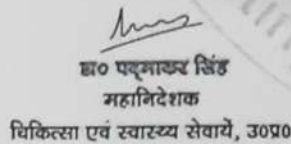 डा० पद्माकर सिंह
महानिदेशक
चिकित्सा एवं स्वास्थ्य सेवायें, उ०प्र०